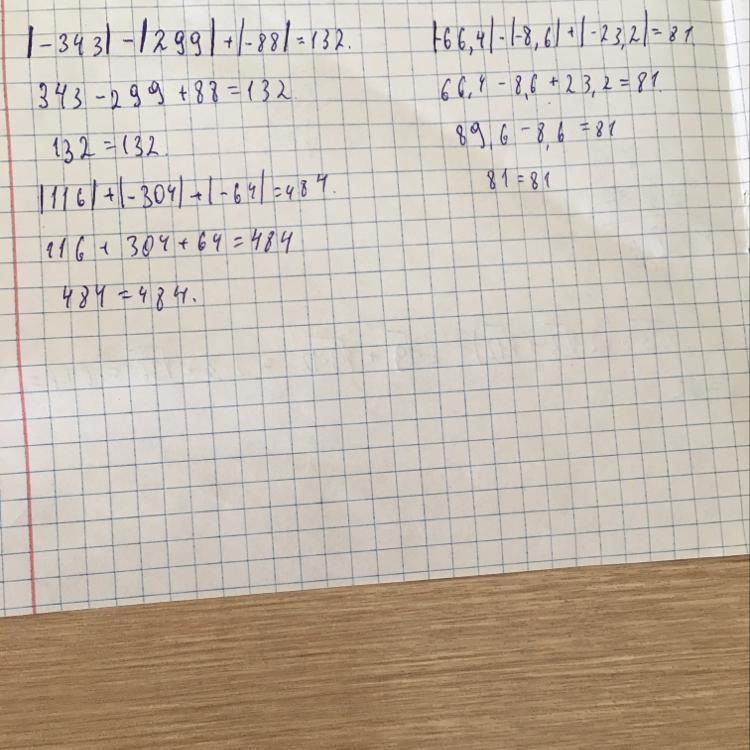 |-343| - |299| + |-88| = 132.
343 - 299 + 88 = 132
132 = 132.
|116| + |-304| + |-64| = 484.
116 + 304 + 64 = 484
484 = 484.
|-66,4| - |-8,6| + |-23,2| = 81
66,4 - 8,6 + 23,2 = 81.
89,6 - 8,6 = 81
81 = 81